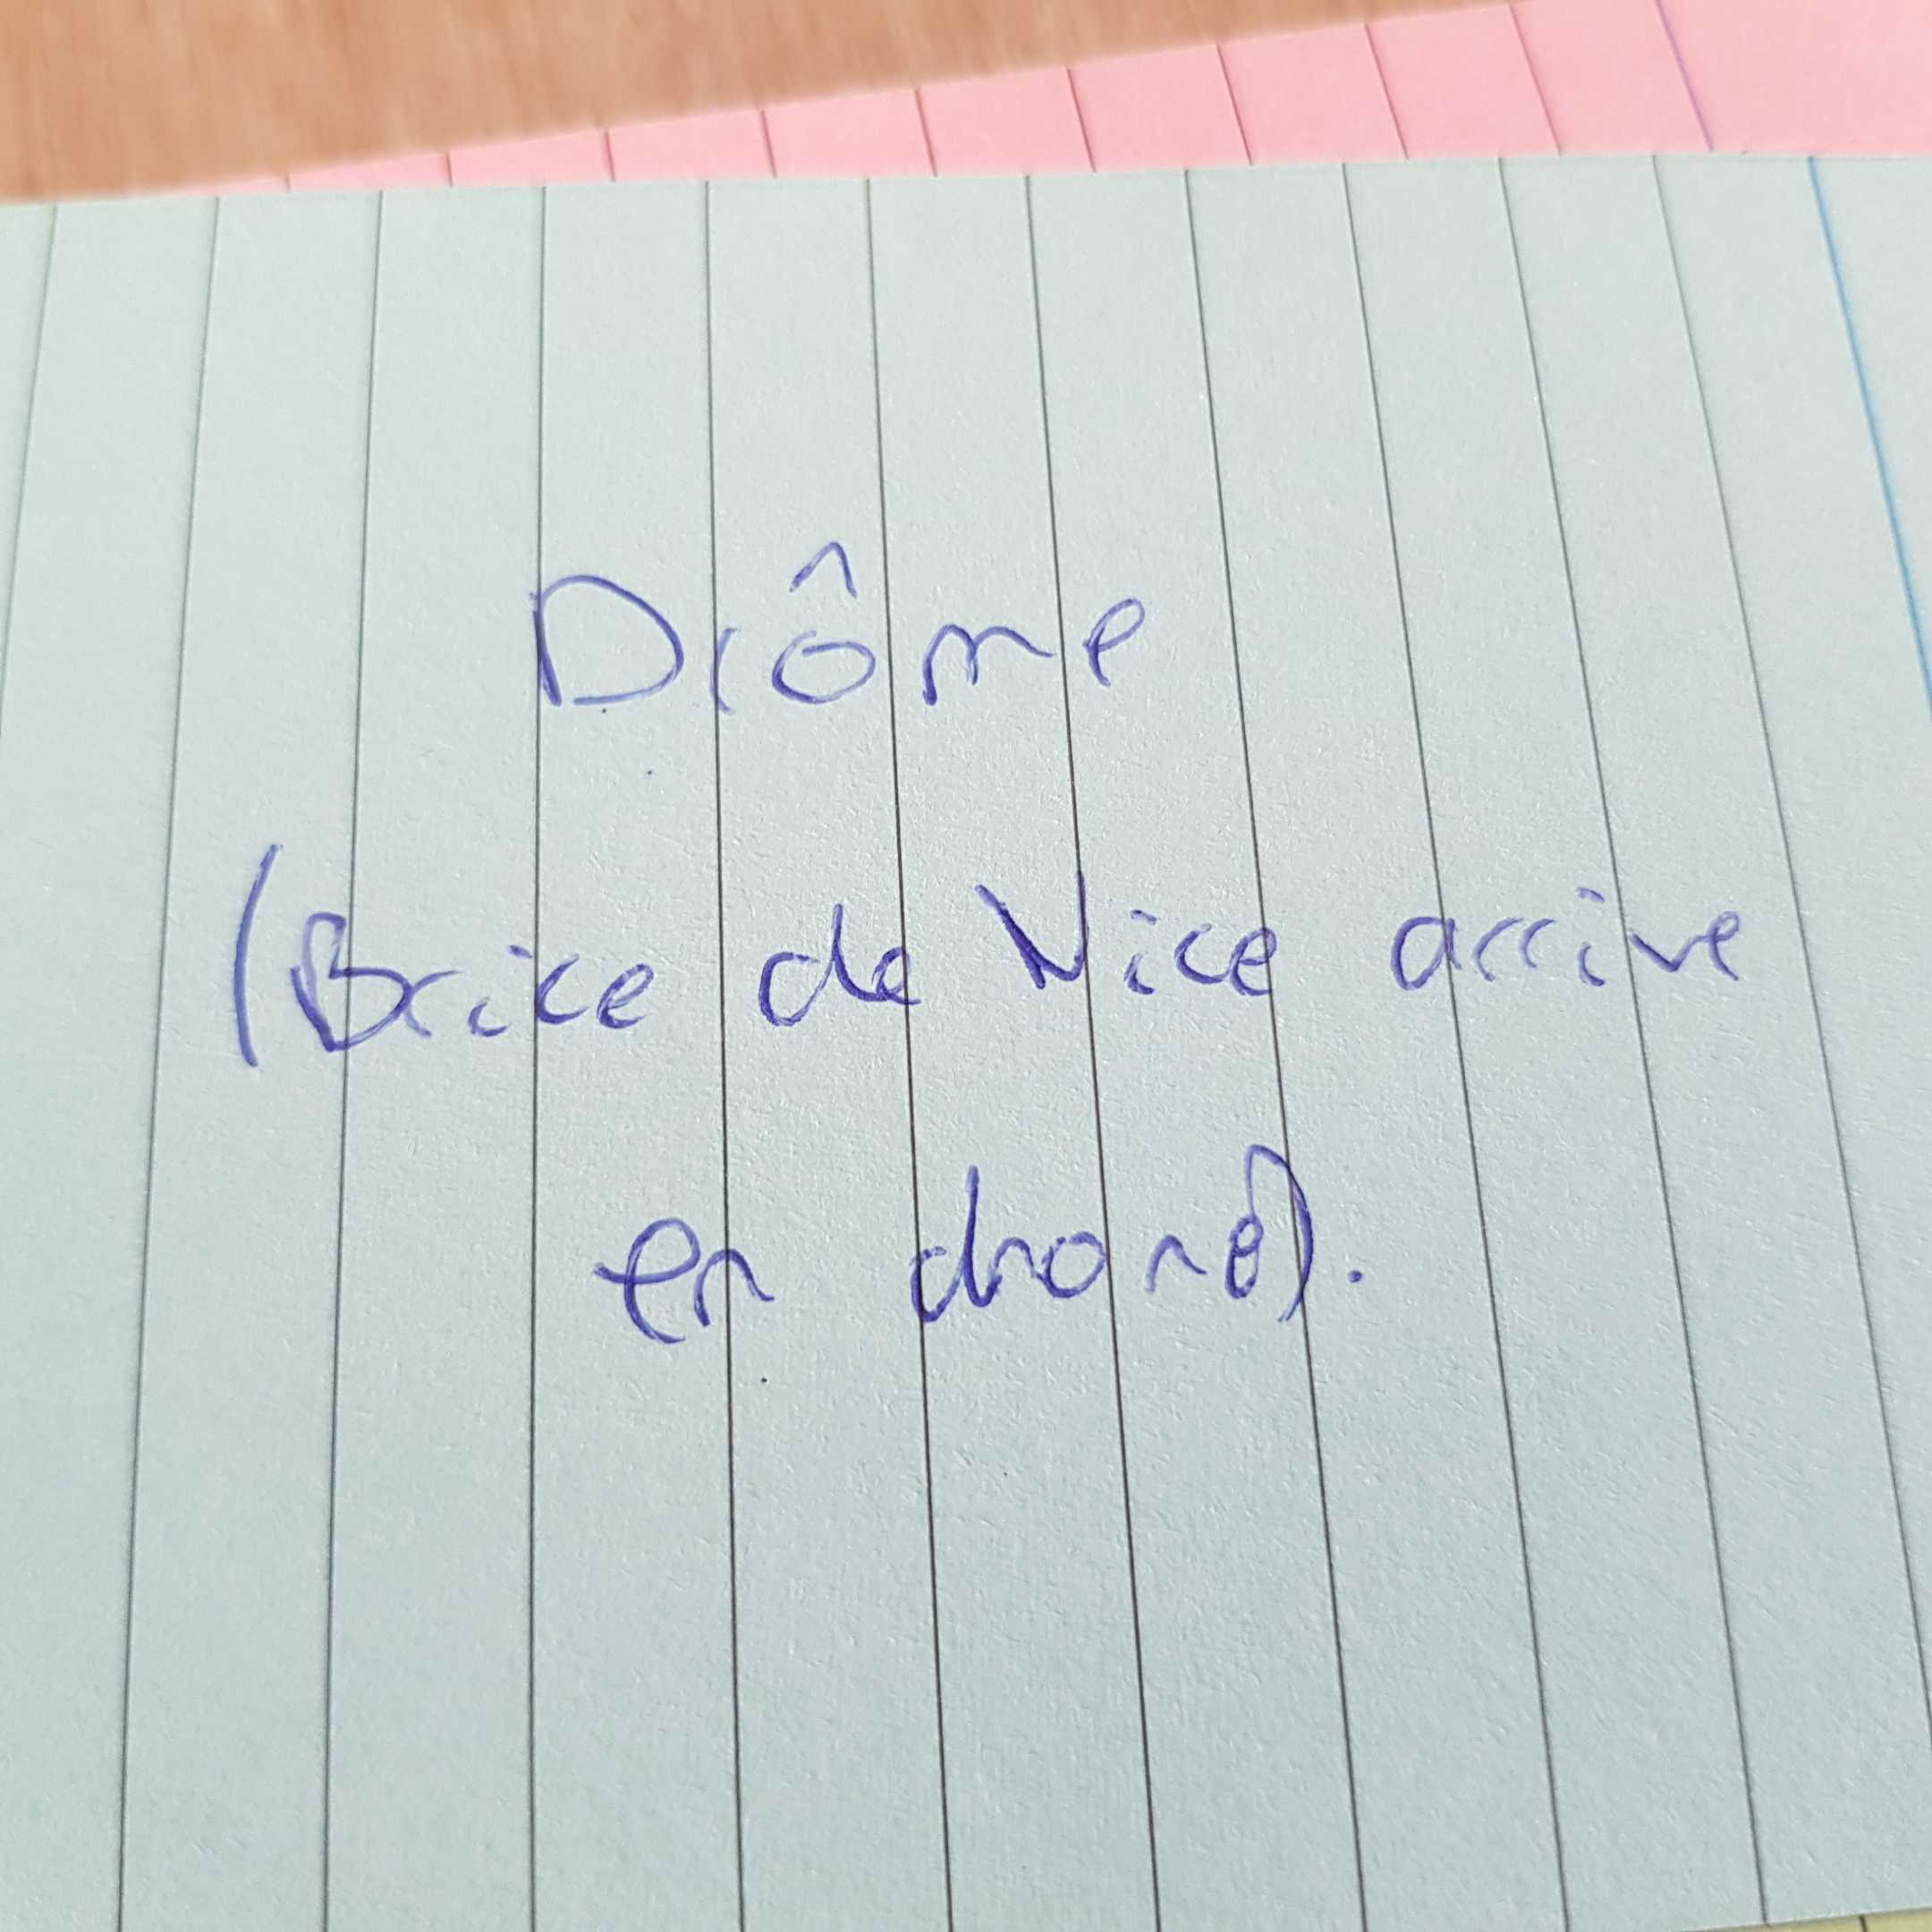 Drôme
(Brice de Nice arrive
en drone).